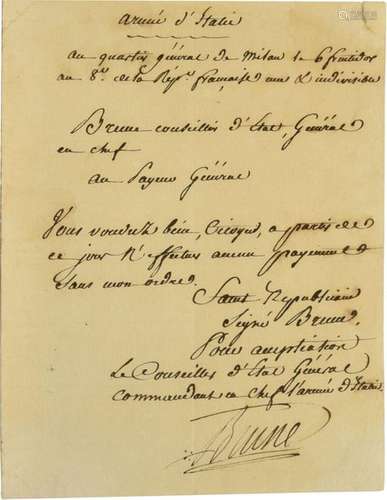 Armée d'Italie
au quartier général de Milan le 6 fructidor
an 8me. de la Répe. française une & indivisible
Brune conseiller d'Etat, Général
en chef
au Payeur Général
Vous voudrez bien, Citoyen, a partir de
ce jour n'effectuer aucun payement
sans mon ordre.
Salut Republicain
Signé Brune.
Pour ampliation
Le Conseiller d'Etat Général
commandant en chef l'armée d'Italie
Brune